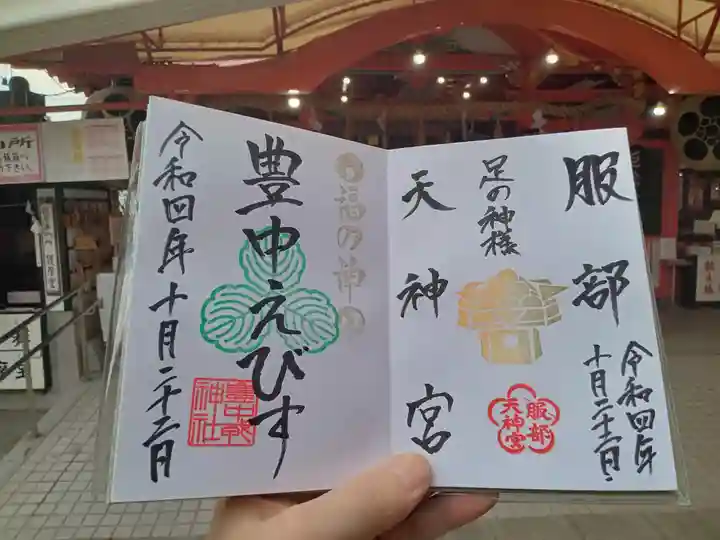 服部
天神宮
足の神様
令和四年
十月二十二日
服部
天神宮
福の神
豊中えびす
豊中戎
神社
令和四年十月二十二日